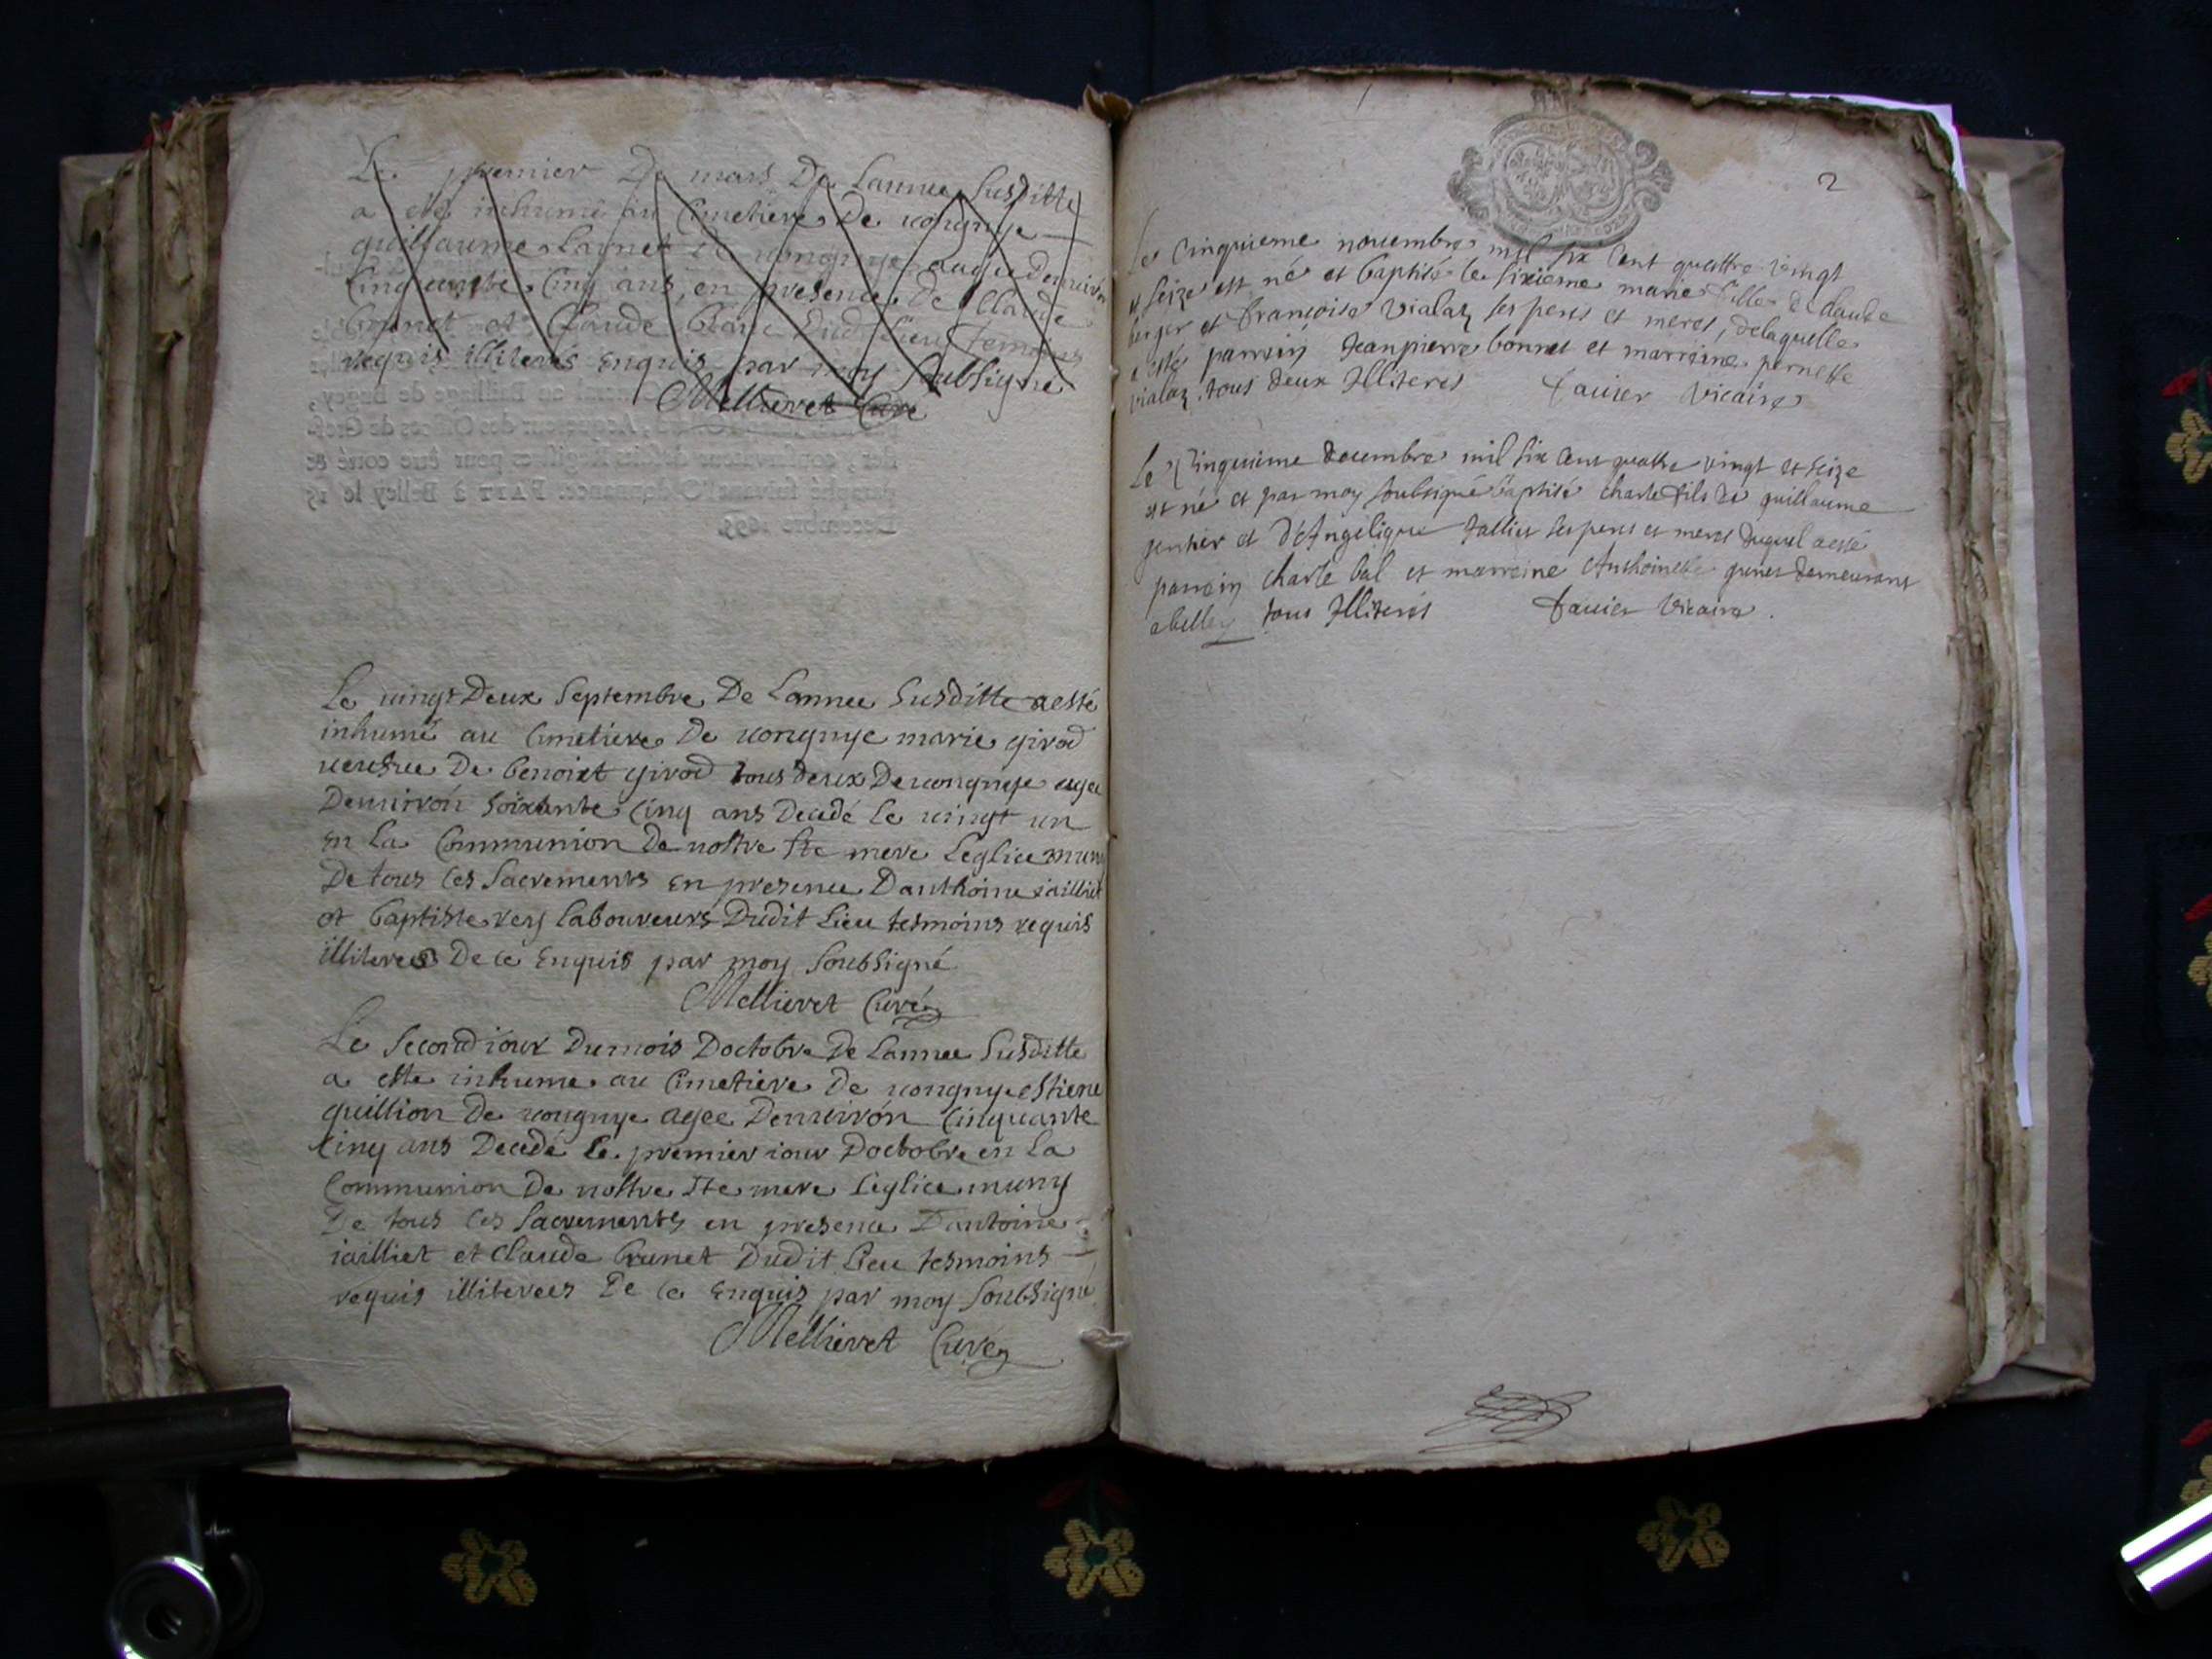 Le premier De mars De Lannee Susditte
a esté inhumé au Cimetiere De uongnye
guillaume De uongnye augee denuiron
Cinquante Cinq ans, en presence De Claude
brunet et Claude Dudit Lieu temoins
requis illiterés Enquis par moy Soubsigné
Mellieret Curé
Decembre 1695.
Le uingt Deux Septembre De Lannee Susditte a esté
inhumé au Cimetiere De uongnye marie girod
ueufue De benoixt girod tous deux De uongnye agee
Denuirón soixante Cinq ans Decedé Le uingt un
En La Communion De nostre Ste mere Leglice muny
De tous Les Sacrements En presence Danthoine iailliet
et baptiste rey laboureurs Dudit Lieu tesmoins requis
illiterees De ce Enquis par moy Soubsigné
Mellieret Curé
Le Second iour Du mois Doctobre De Lannee Susditte
a este inhume au Cimetiere De uongnye estiene
guillion De uongnye agee Denuirón Cinquante
Cinq ans Decedé Le premier iour Doctobre en La
Communion De nostre Ste mere Leglice muny
De tous Les Sacrements en presence Dantoine
iailliet et Claude brunet Dudit Lieu tesmoins
requis illiterees De ce Enquis par moy Soubsigné
Mellieret Curé
2
Le Cinquieme nouembre mil six Cent quattre vingt
et seize est né et baptisé le sixieme marie fille de Claude
berger et francoise vialaz ses peres et meres, de laquelle
a esté parrein Jeanpierre bonnet et marreine pernette
vialaz tous deux Illiteres fauier vicaire
Le Cinquieme decembre mil six Cent quattre vingt et seize
est né et par moy soubsigné baptisé charle fils de guillaume
jentier et d'Angelique Jallier ses peres et meres duquel a esté
parrein charle bal et marreine Anthoinette demeurant
a belley tous Illiterés fauier vicaire.